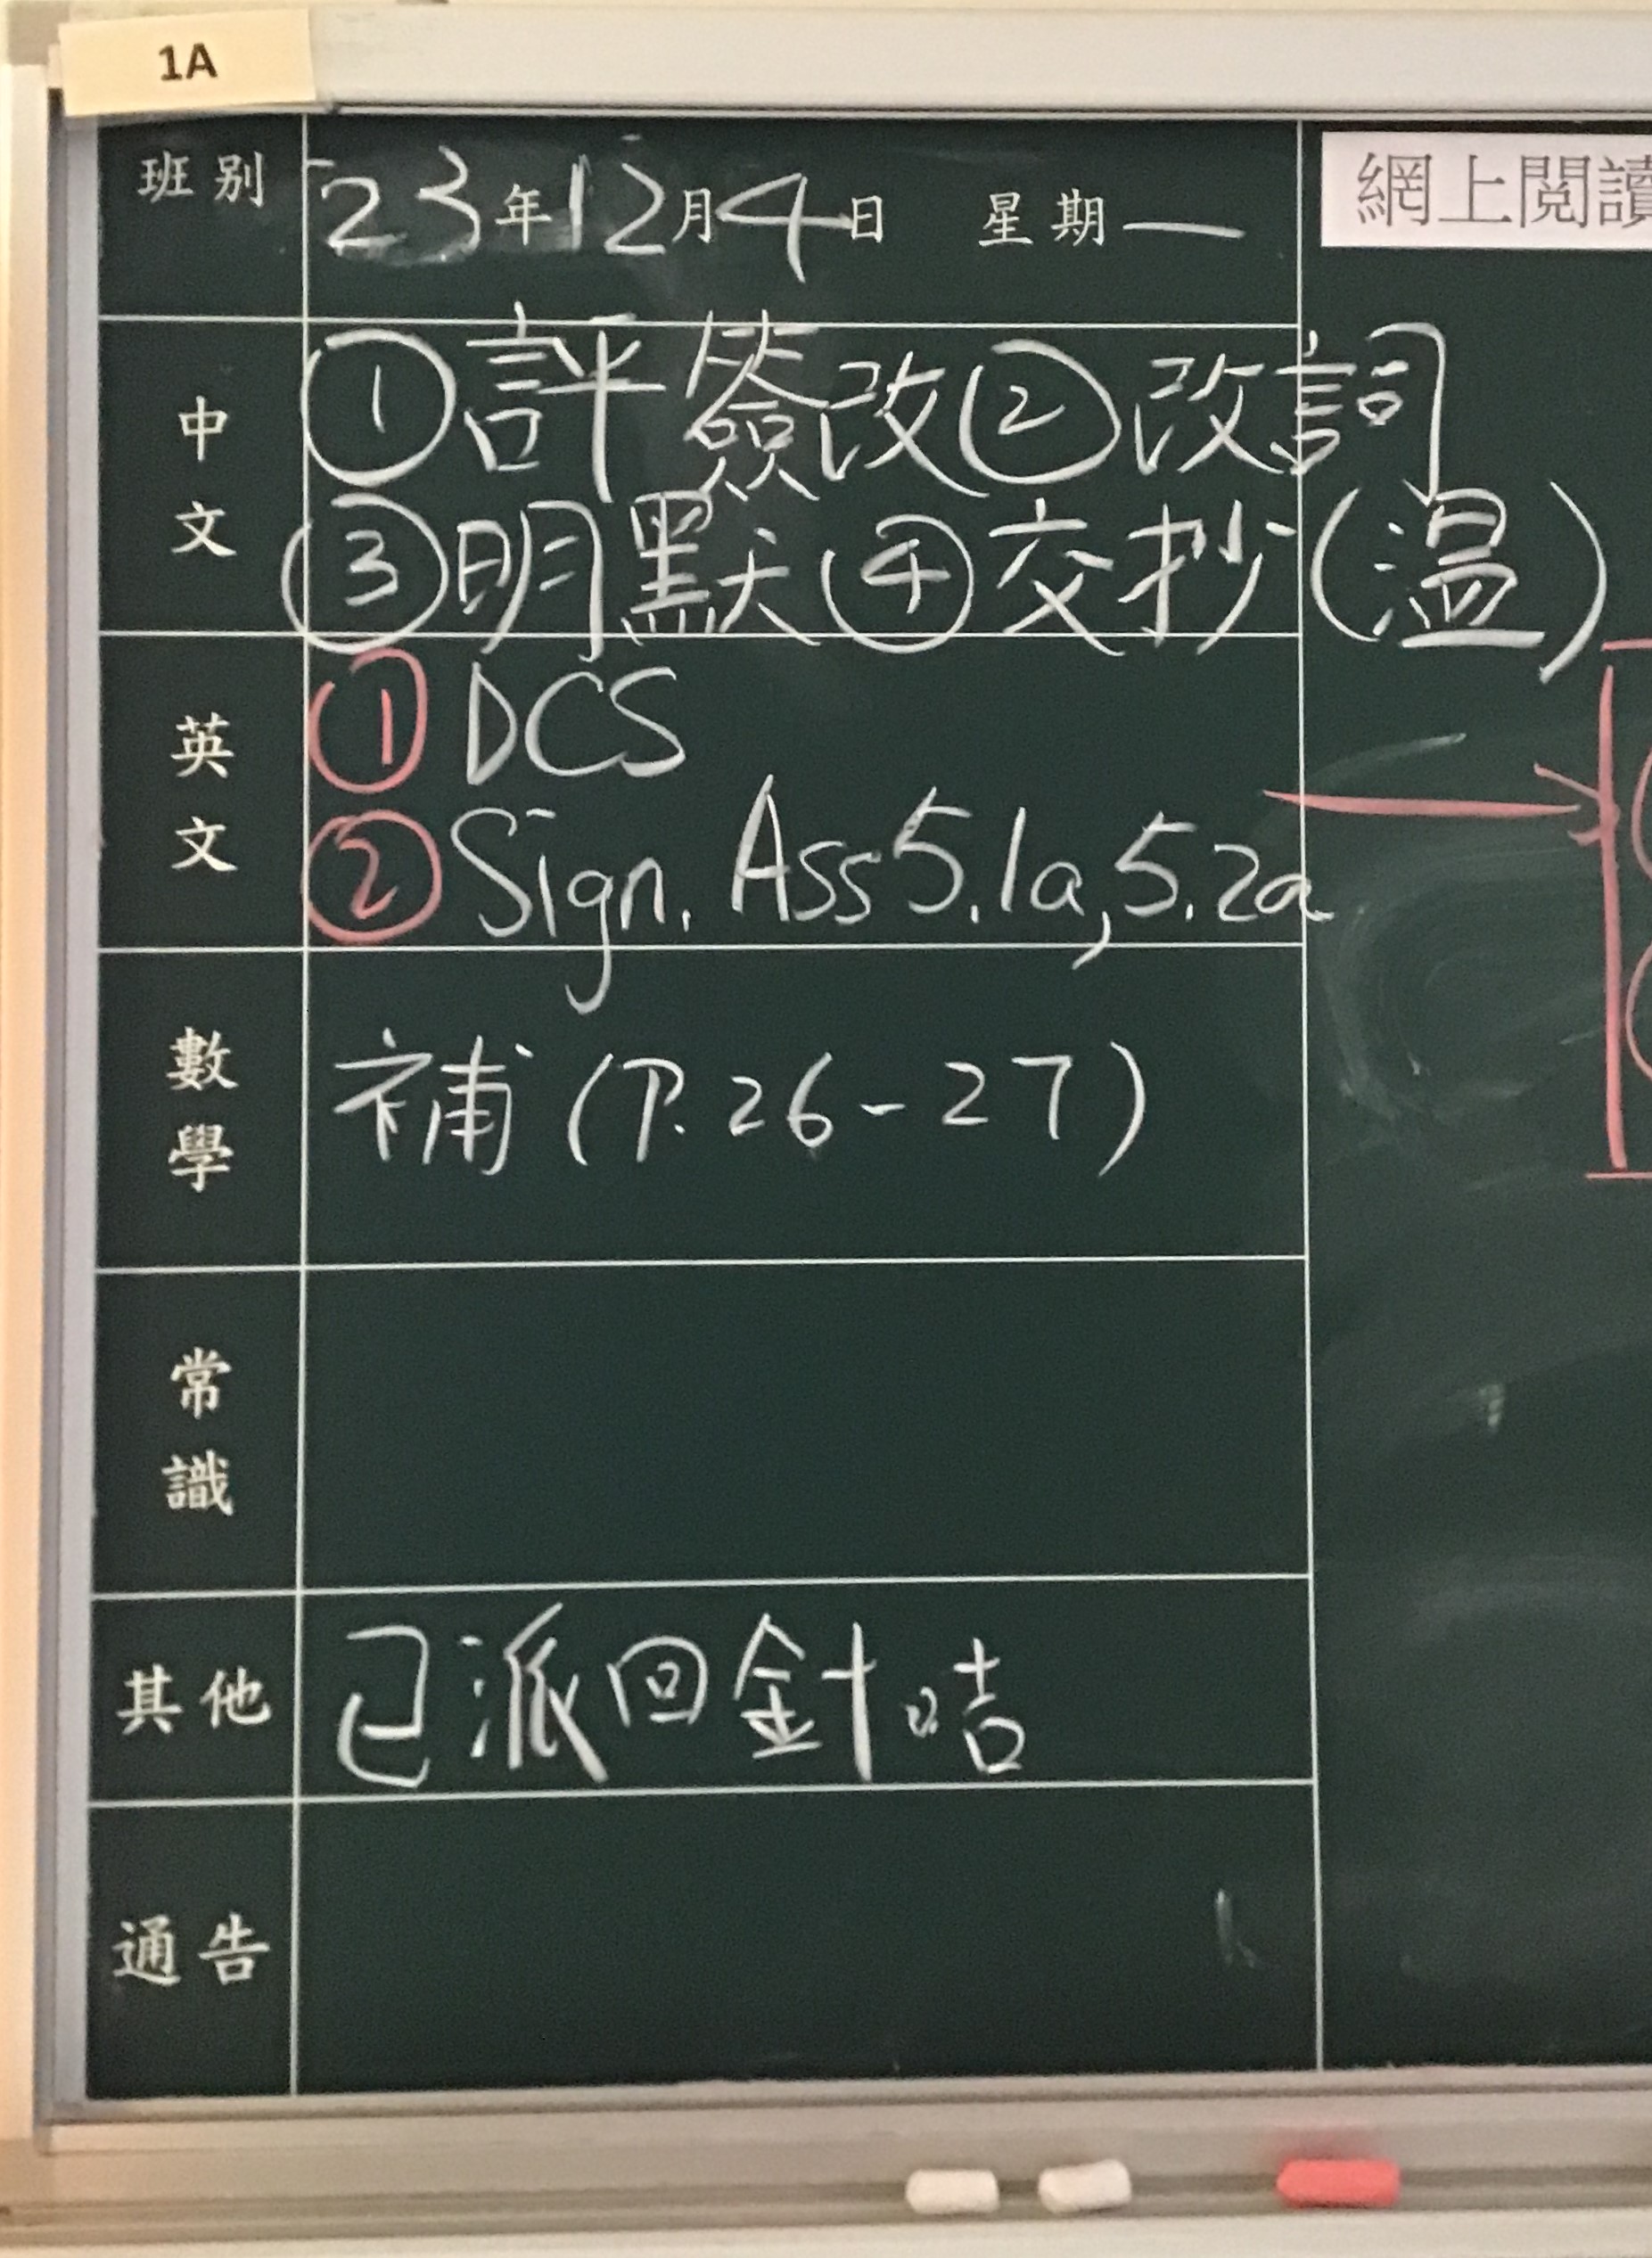 1A
班別 23年12月4日 星期一
網上閱讀
中文 ①評簽改②改詞
③明默④交抄(溫)
英文 ①DCS
②Sign. Ass 5.1a, 5.2a
數學 補(P.26-27)
常識
其他 已派回針咭
通告